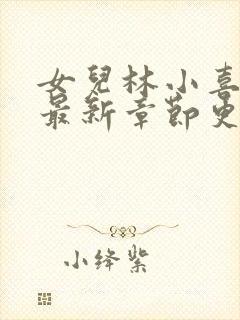 女兒林小喜
最新章節更
小绛紫